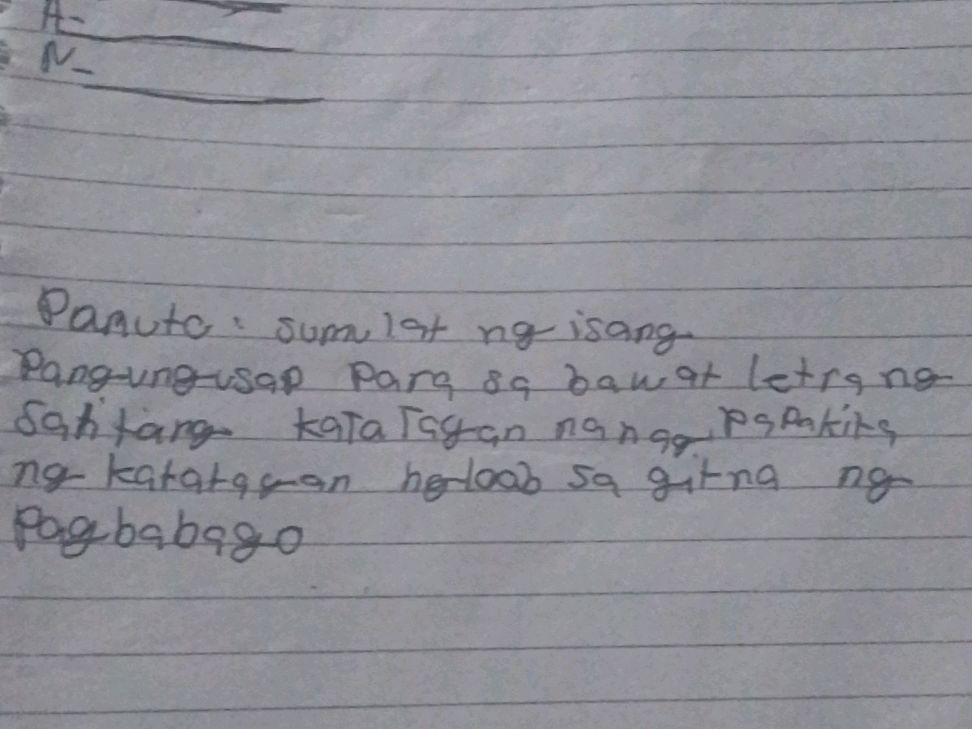 A-
N-
Panuto: sumulat ng isang
Pangungusap Para sa bawat letra ng
Salitang KATATAGAN na nagpapakita
ng katatagan ng loob sa gitna ng
Pagbabago